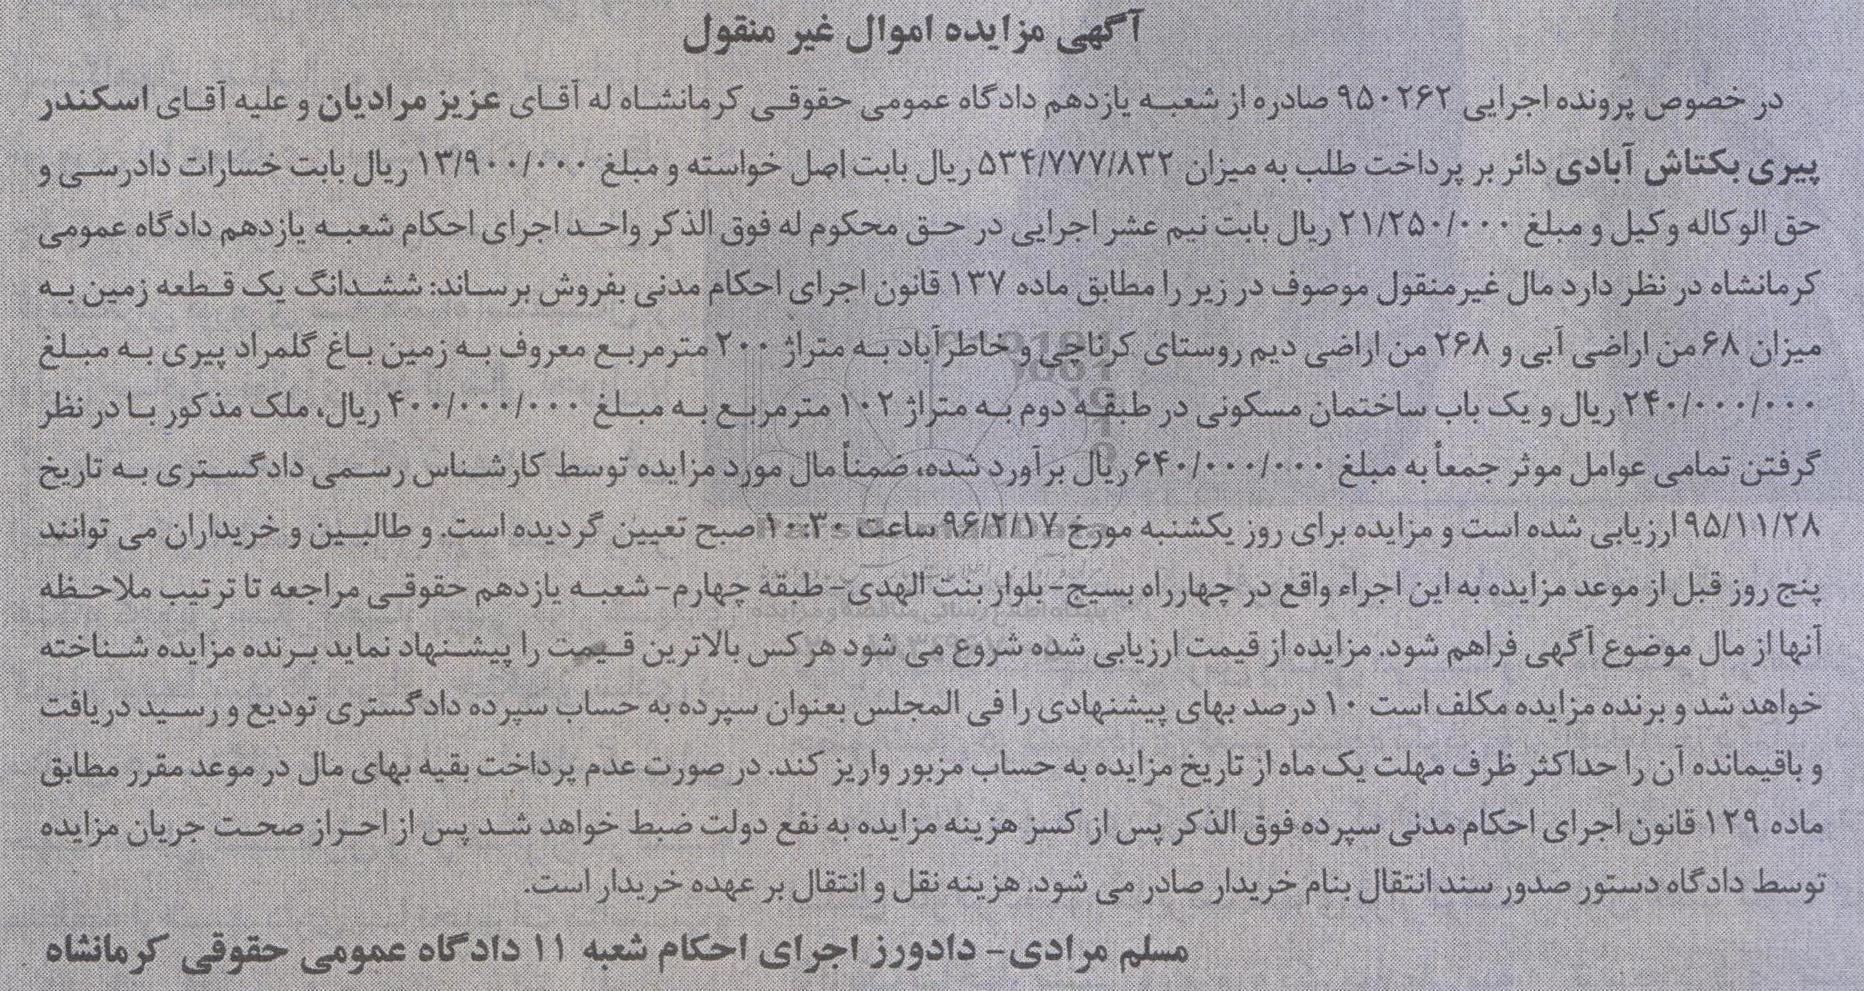 آگهی مزایده اموال غیر منقول
در خصوص پرونده اجرایی ۹۵۰۲۶۲ صادره از شعبه یازدهم دادگاه عمومی حقوقی کرمانشاه له آقای عزیز مرادیان و علیه آقای اسکندر
پیری بکتاش آبادی دائر بر پرداخت طلب به میزان ۵۳۴/۷۷۷/۸۳۲ ریال بابت اصل خواسته و مبلغ ۱۳/۹۰۰/۰۰۰ ریال بابت خسارات دادرسی و
حق الوکاله وکیل و مبلغ ۲۱/۲۵۰/۰۰۰ ریال بابت نیم عشر اجرایی در حق محکوم له فوق الذکر واحد اجرای احکام شعبه یازدهم دادگاه عمومی
کرمانشاه در نظر دارد مال غیرمنقول موصوف در زیر را مطابق ماده ۱۳۷ قانون اجرای احکام مدنی بفروش برساند: ششدانگ یک قطعه زمین به
میزان ۶۸ من اراضی آبی و ۲۶۸ من اراضی دیم روستای کرناچی و خاطرآباد به متراژ ۲۰۰ مترمربع معروف به زمین باغ گلمراد پیری به مبلغ
۲۴۰/۰۰۰/۰۰۰ ریال و یک باب ساختمان مسکونی در طبقه دوم به متراژ ۱۰۲ مترمربع به مبلغ ۴۰۰/۰۰۰/۰۰۰ ریال، ملک مذکور با در نظر
گرفتن تمامی عوامل موثر جمعاً به مبلغ ۶۴۰/۰۰۰/۰۰۰ ریال برآورد شده، ضمناً مال مورد مزایده توسط کارشناس رسمی دادگستری به تاریخ
۹۵/۱۱/۲۸ ارزیابی شده است و مزایده برای روز یکشنبه مورخ ۹۶/۲/۱۷ ساعت ۱۰:۳۰ صبح تعیین گردیده است. و طالبین و خریداران می توانند
پنج روز قبل از موعد مزایده به این اجراء واقع در چهارراه بسیج- بلوار بنت الهدی- طبقه چهارم- شعبه یازدهم حقوقی مراجعه تا ترتیب ملاحظه
آنها از مال موضوع آگهی فراهم شود. مزایده از قیمت ارزیابی شده شروع می شود هرکس بالاترین قیمت را پیشنهاد نماید برنده مزایده شناخته
خواهد شد و برنده مزایده مکلف است ۱۰ درصد بهای پیشنهادی را فی المجلس بعنوان سپرده به حساب سپرده دادگستری تودیع و رسید دریافت
و باقیمانده آن را حداکثر ظرف مهلت یک ماه از تاریخ مزایده به حساب مزبور واریز کند. در صورت عدم پرداخت بقیه بهای مال در موعد مقرر مطابق
ماده ۱۲۹ قانون اجرای احکام مدنی سپرده فوق الذکر پس از کسز هزینه مزایده به نفع دولت ضبط خواهد شد پس از احراز صحت جریان مزایده
توسط دادگاه دستور صدور سند انتقال بنام خریدار صادر می شود. هزینه نقل و انتقال بر عهده خریدار است.
مسلم مرادی- دادورز اجرای احکام شعبه ۱۱ دادگاه عمومی حقوقی کرمانشاه